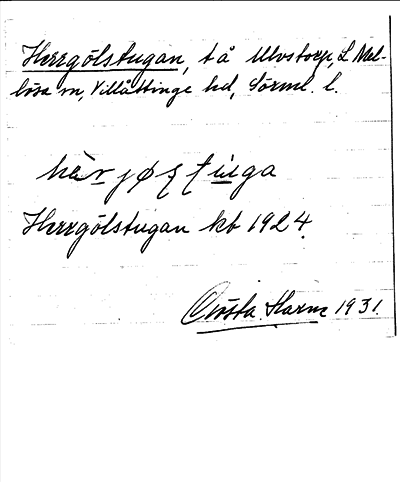 Herrgölstugan, t å Ulvstorp, L Mel-
lösa sn, Villåttinge hd, Sörml. l.
Herrgölstugan kb 1924.
Gösta Harm 1931.